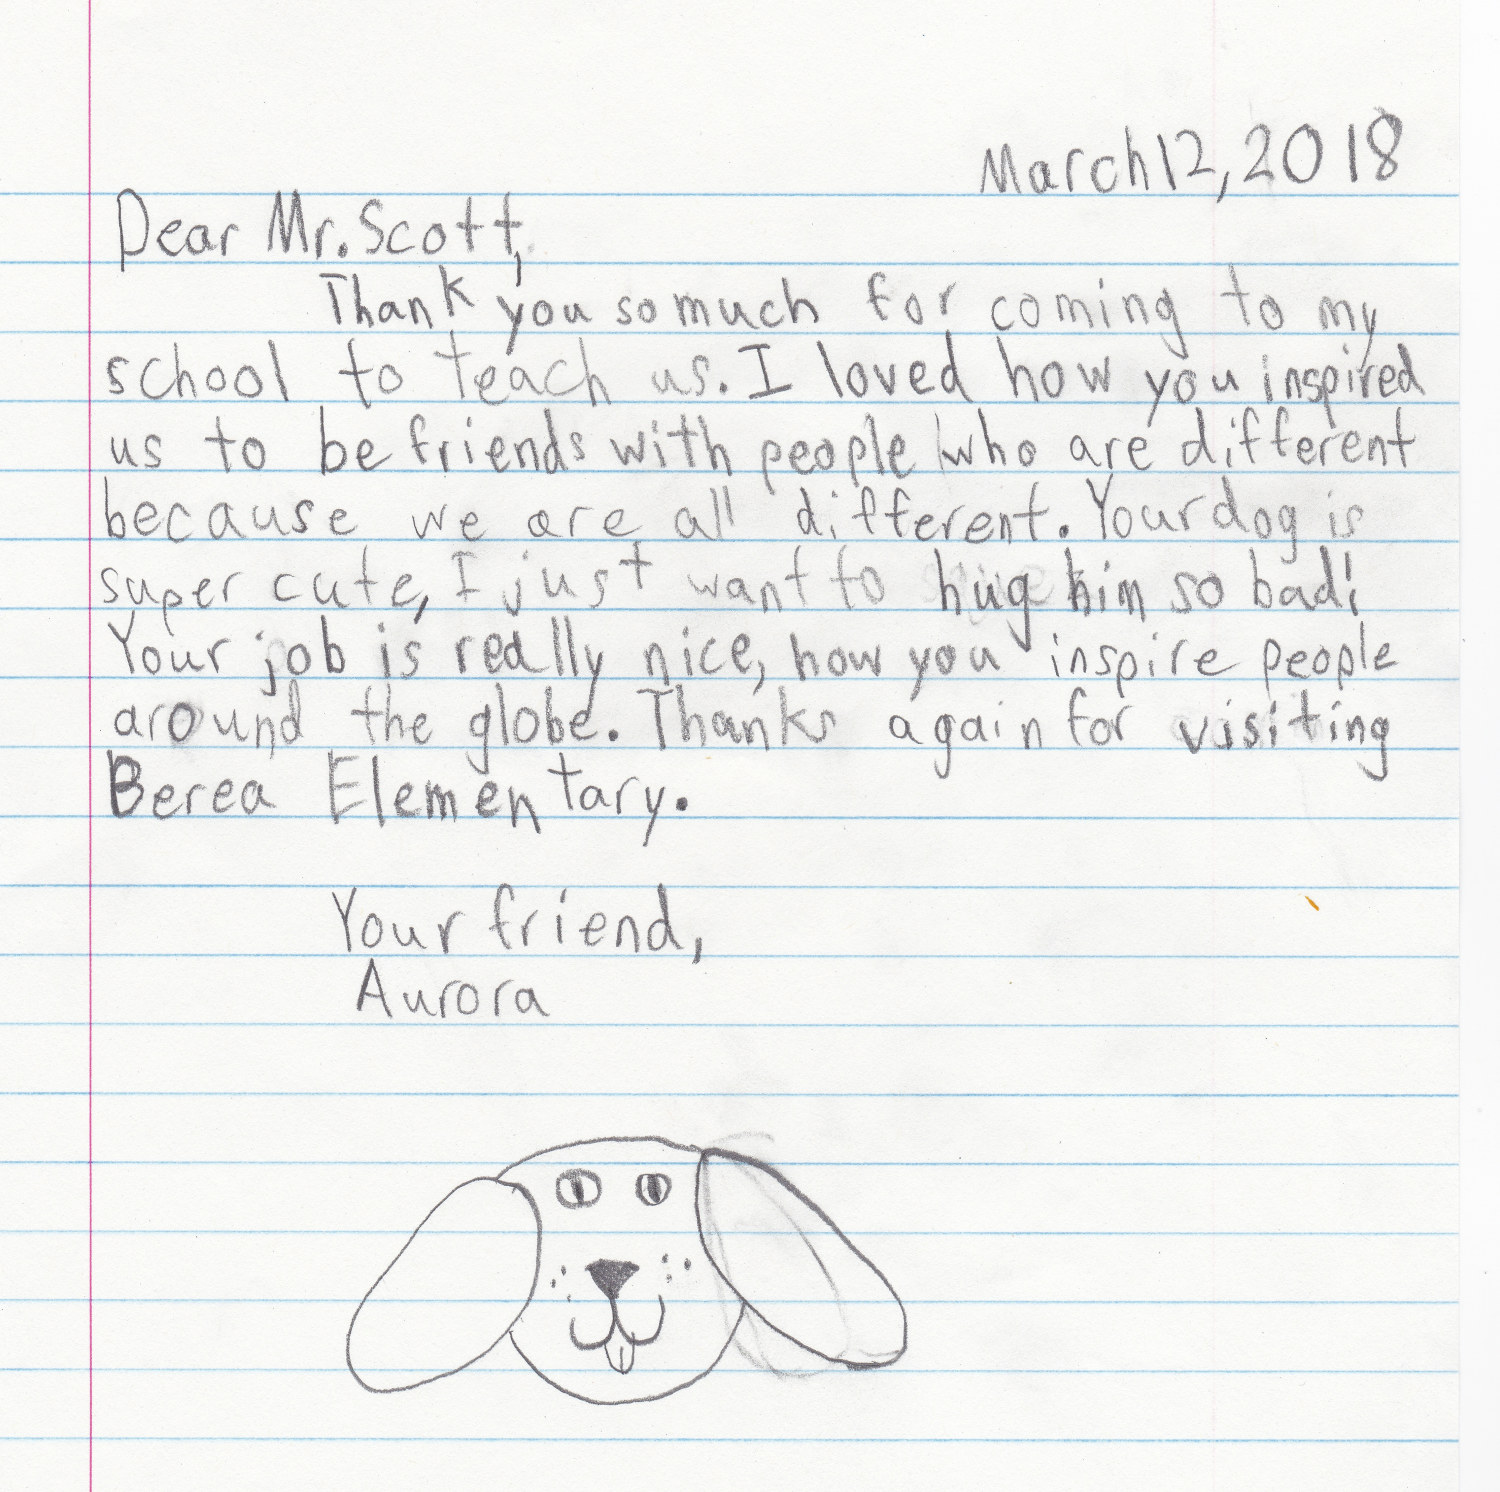 March 12, 2018
Dear Mr. Scott,
Thank you so much for coming to my
school to teach us. I loved how you inspired
us to be friends with people who are different
because we are all different. Your dog is
super cute, I just want to hug him so bad!
Your job is really nice, how you inspire people
around the globe. Thanks again for visiting
Berea Elementary.
Your friend,
Aurora